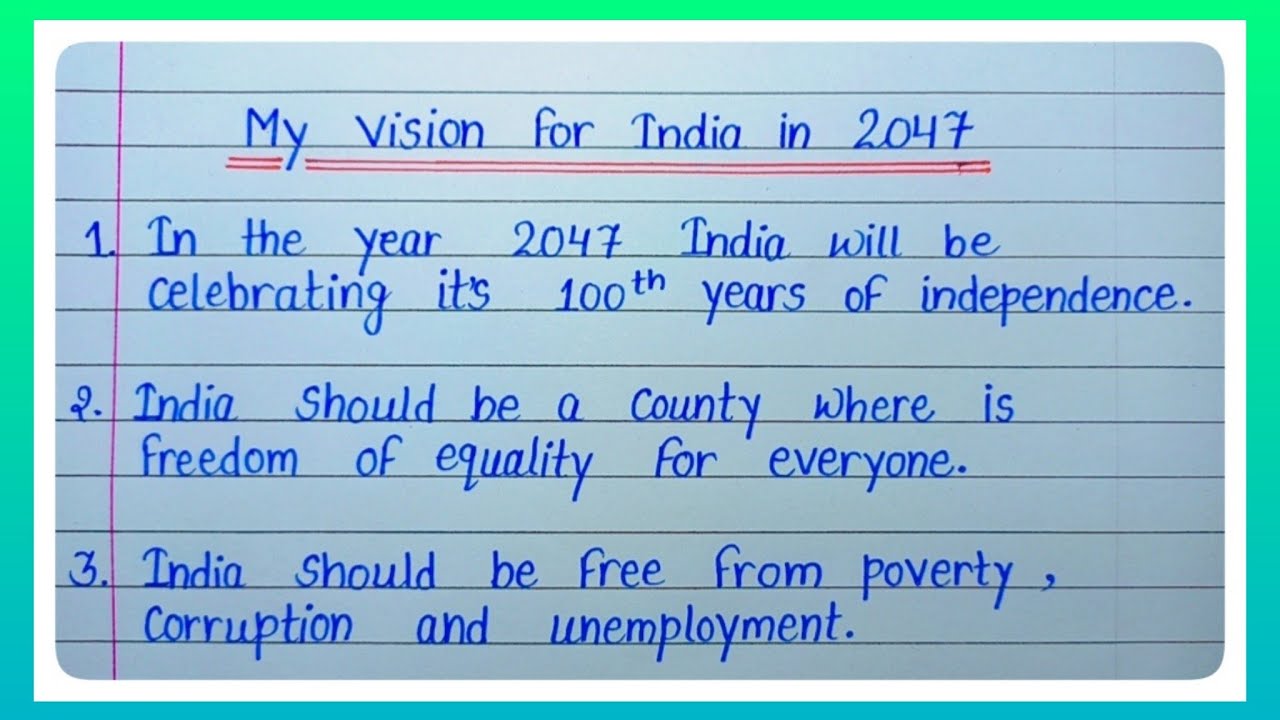 My Vision for India in 2047
1. In the year 2047 India will be
celebrating it's 100th years of independence.
2. India should be a county where is
freedom of equality for everyone.
3. India should be free from poverty,
corruption and unemployment.